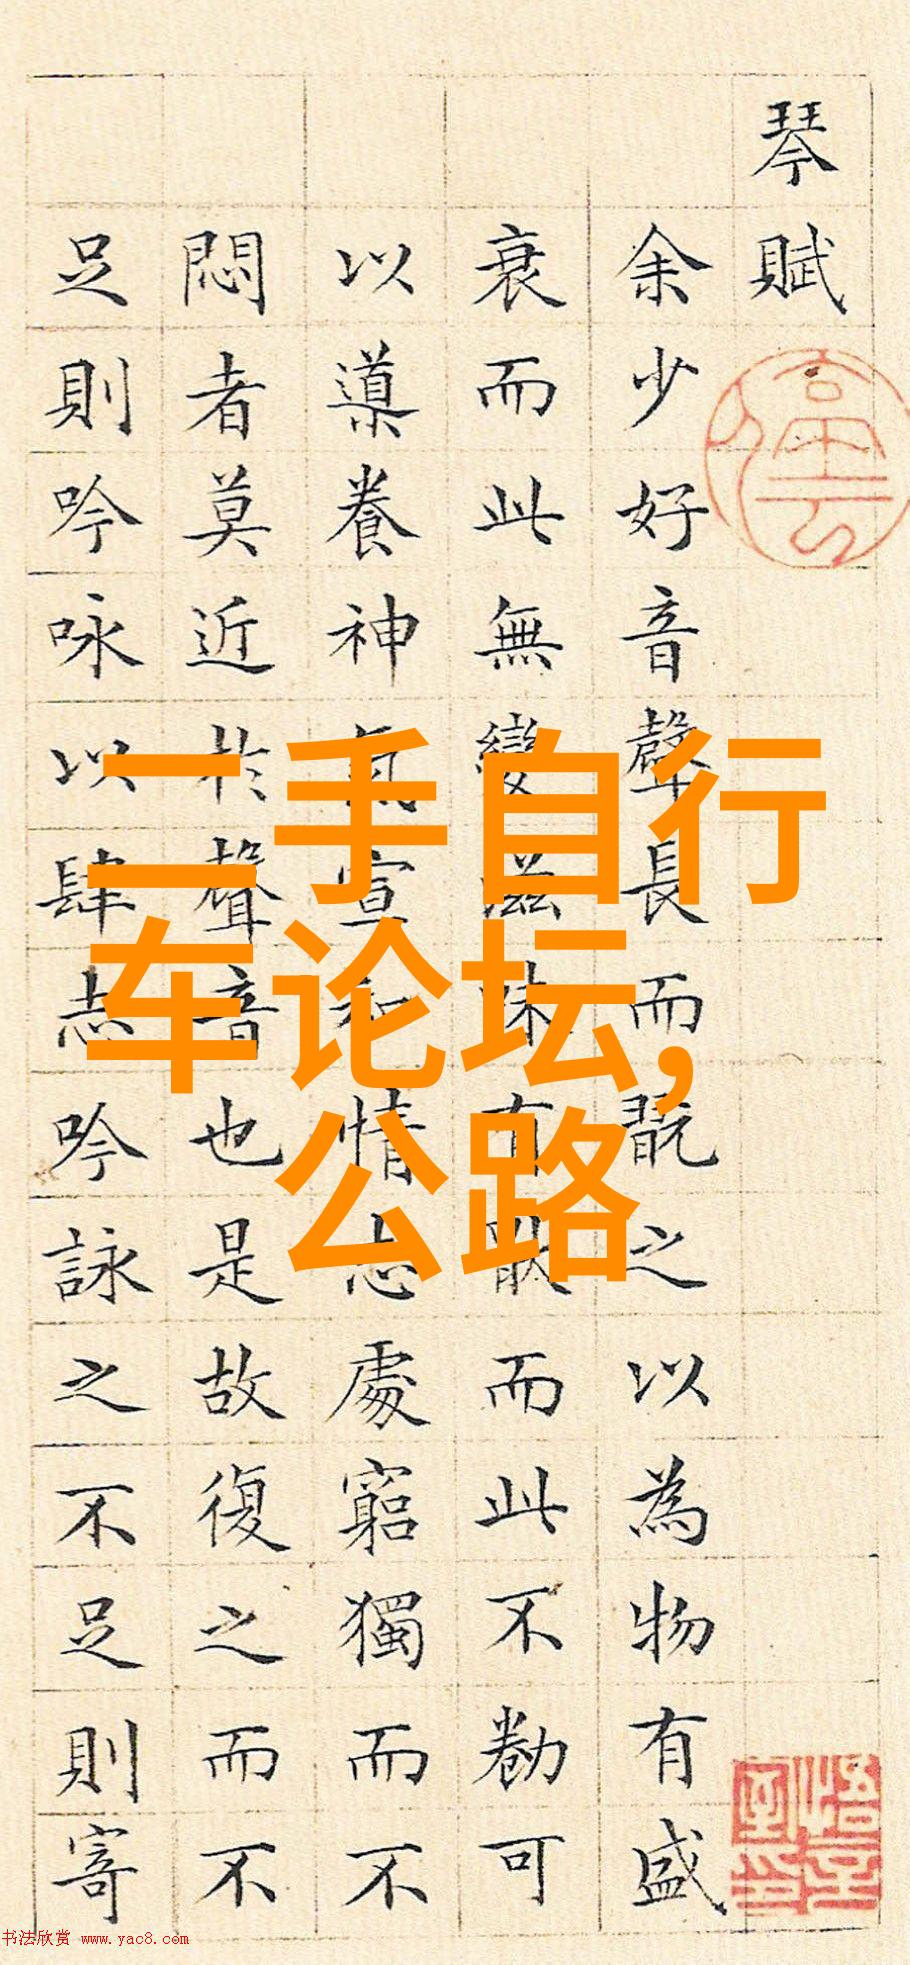 琴賦
余少好音聲長而翫之以為物有盛
衰而此無變滋味有猒而此不勌可
以導養神氣宣和情志處窮獨而不
悶者莫近於聲音也是故復之而不
足則吟咏以肆志吟詠之不足則寄
二手自行
车论坛,
公路
书法欣赏 www.yac8.com